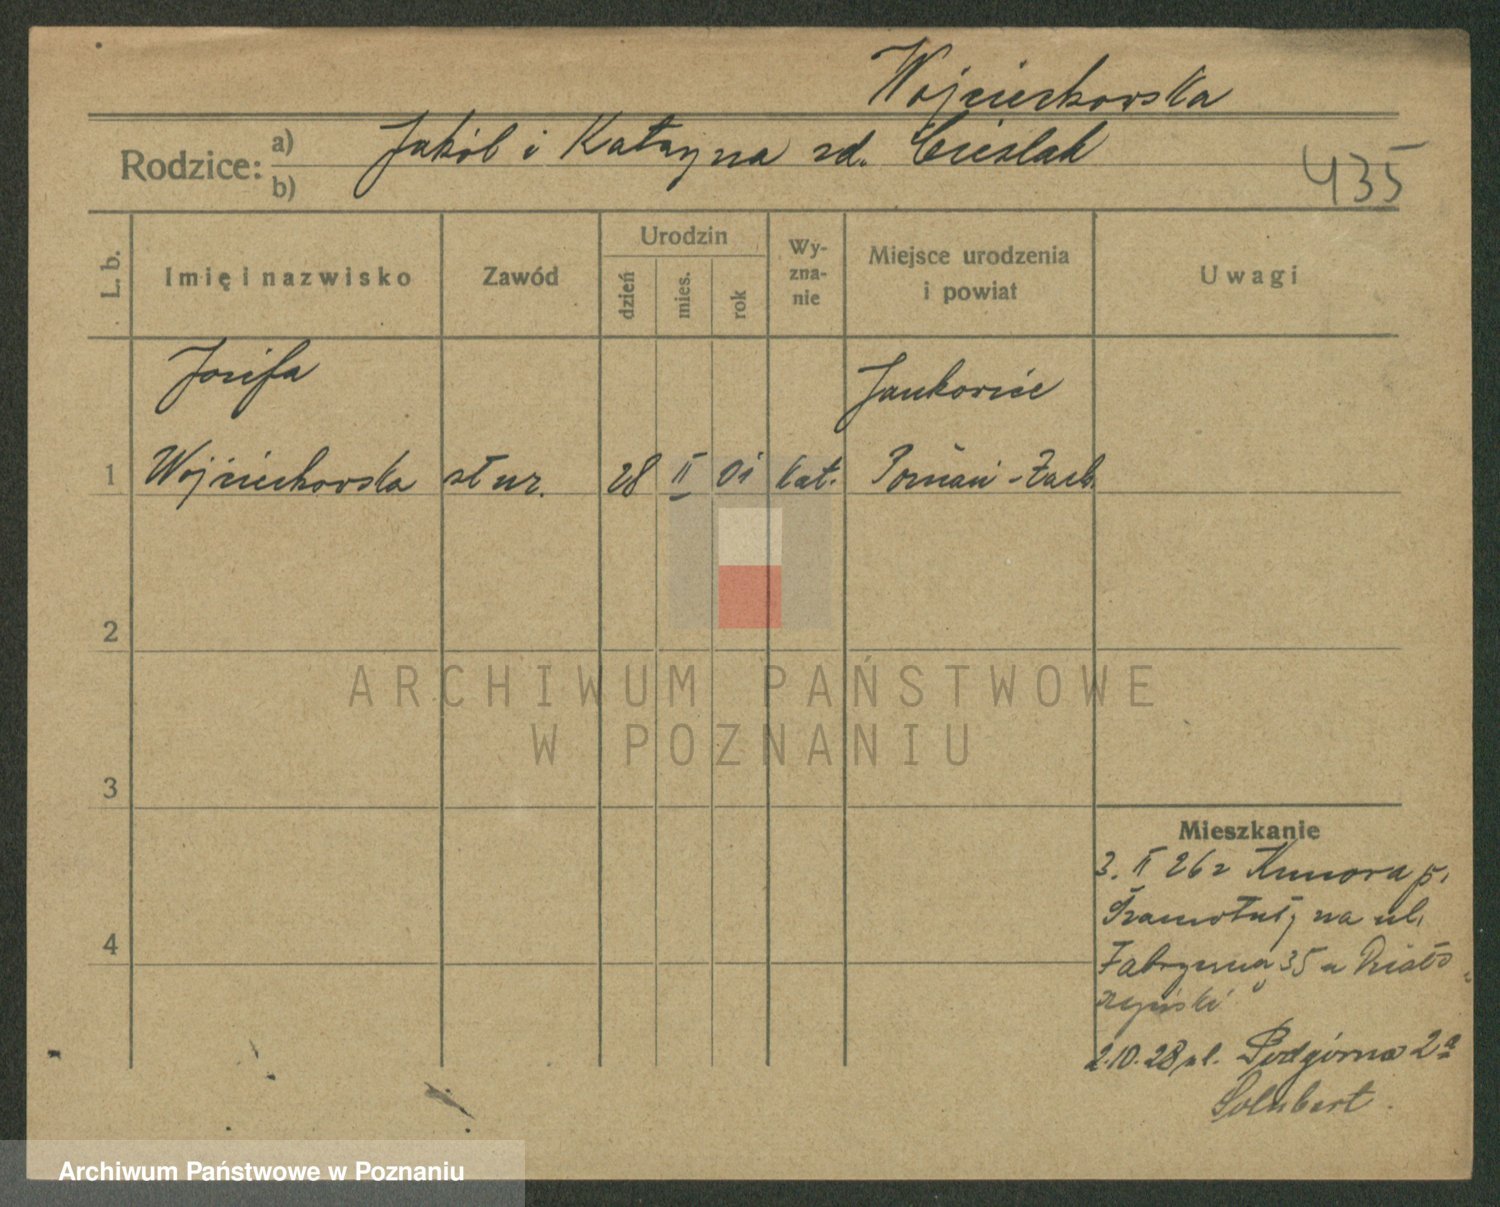 Wojciechowska
Rodzice: a) b) Jakób i Katarzyna zd. Cieślak
435
L. b.
Imię i nazwisko
Zawód
Urodzin
dzień
mies.
rok
Wy-
zna-
nie
Miejsce urodzenia
i powiat
Uwagi
Józefa
Jankowice
1 Wojciechowska służ. 28 II 01 kat. Poznań-Zach.
2
ARCHIWUM PAŃSTWOWE
W POZNANIU
3
Mieszkanie
3. II 26 z p.
Szamotuły na ul.
4
Fabryczna 35 u Działo
szyński
2.10.28 ul. Podgórna 2a
Archiwum Państwowe w Poznaniu